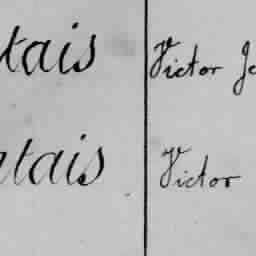 tais Victor Je
tais Victor